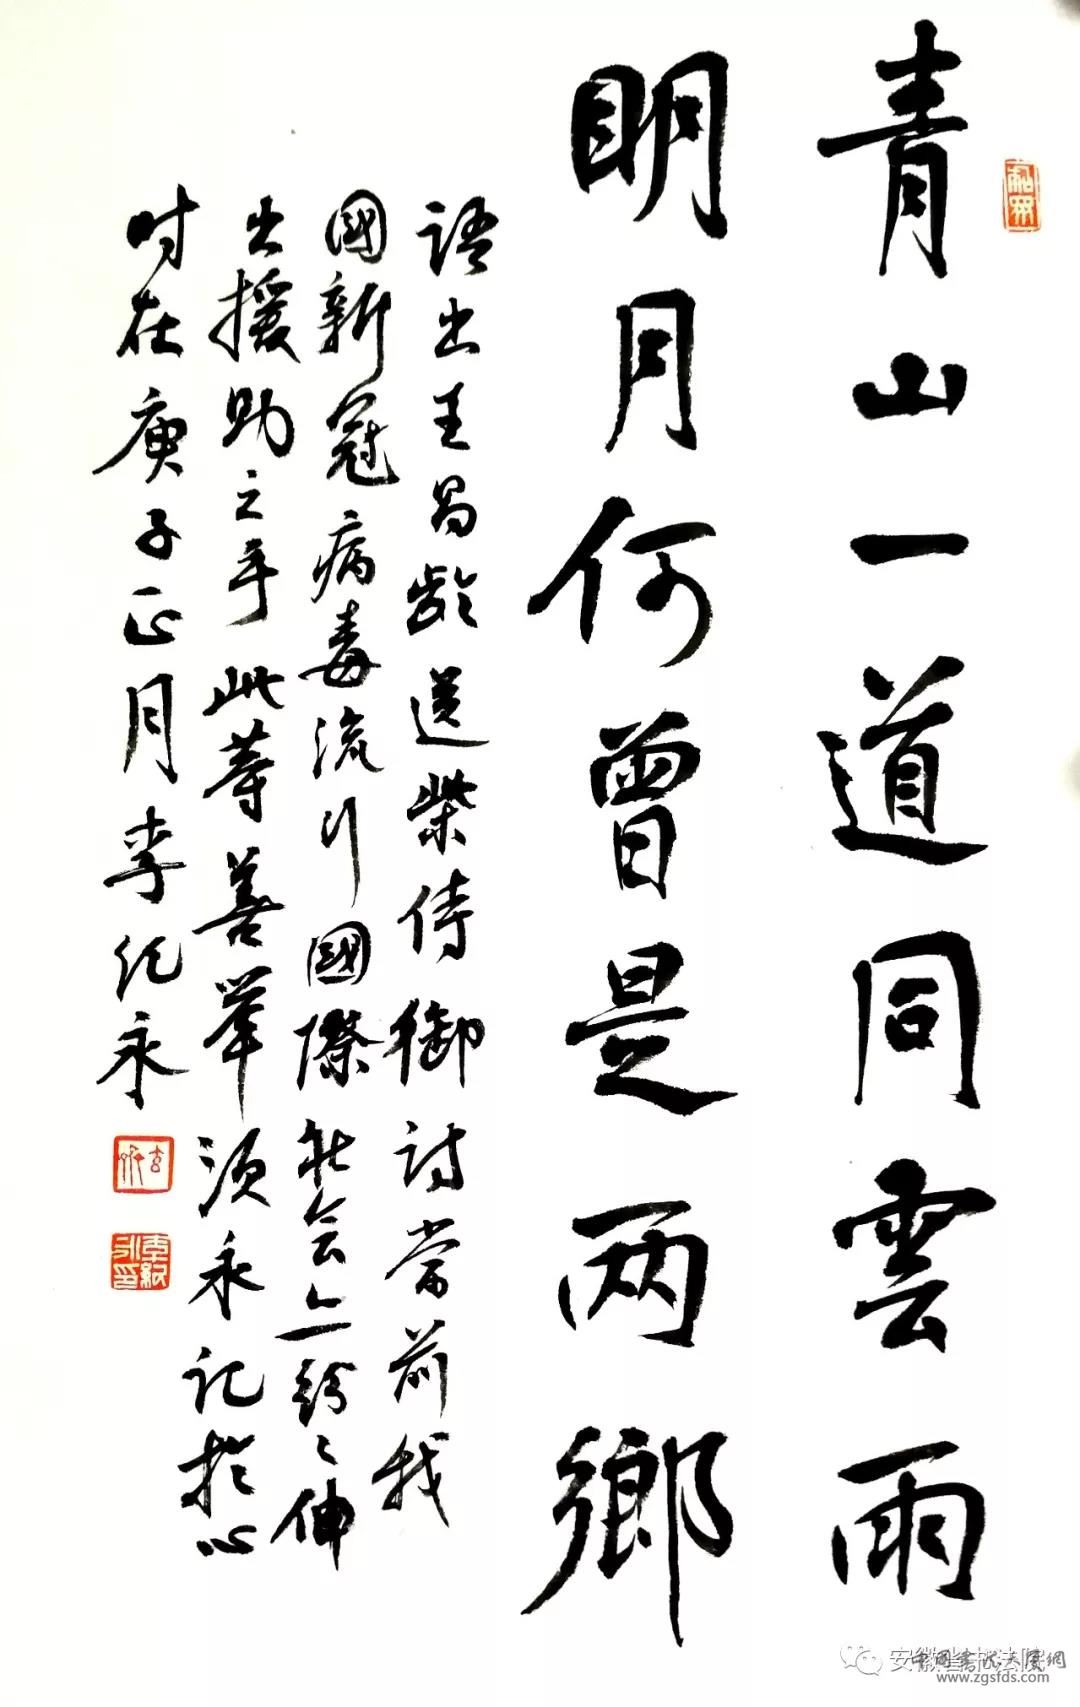 青山一道同雲雨
明月何曾是两鄉
語出王昌齡送柴侍御诗當前我
國新冠病毒流行國際社会亦紛々伸
出援助之手此等善舉須永记於心
时在庚子正月李纪永
安徽省书法院
www.zgsfds.com